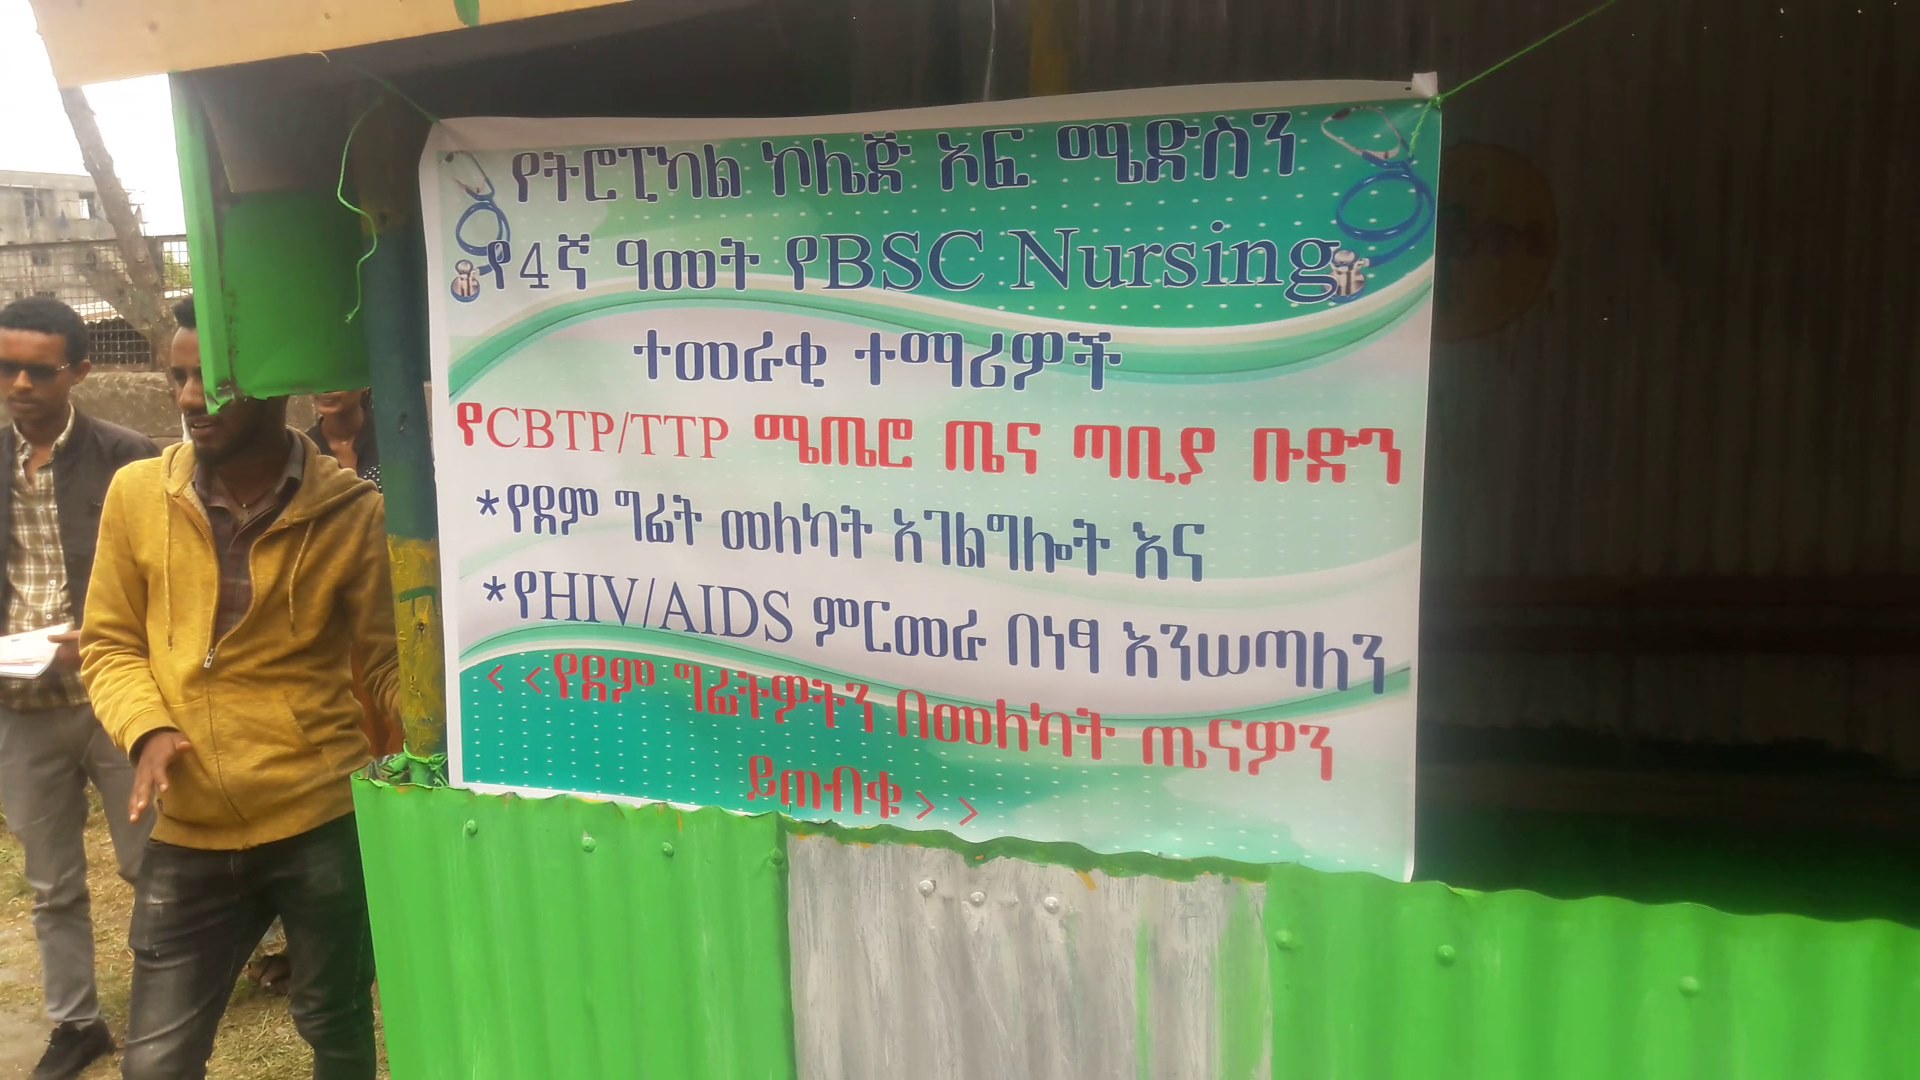 የትሮፒካል ኮሌጅ ኦፍ ሜድስን
የ4ኛ ዓመት የBSC Nursing
ተመራቂ ተማሪዎች
የCBTP/TTP ሜጤሮ ጤና ጣቢያ ቡድን
*የደም ግፊት መለካት አገልግሎት እና
*የHIV/AIDS ምርመራ በነፃ እንሠጣለን
< <የደም ግፊትዎትን በመለካት ጤናዎን
ይጠብቁ> >